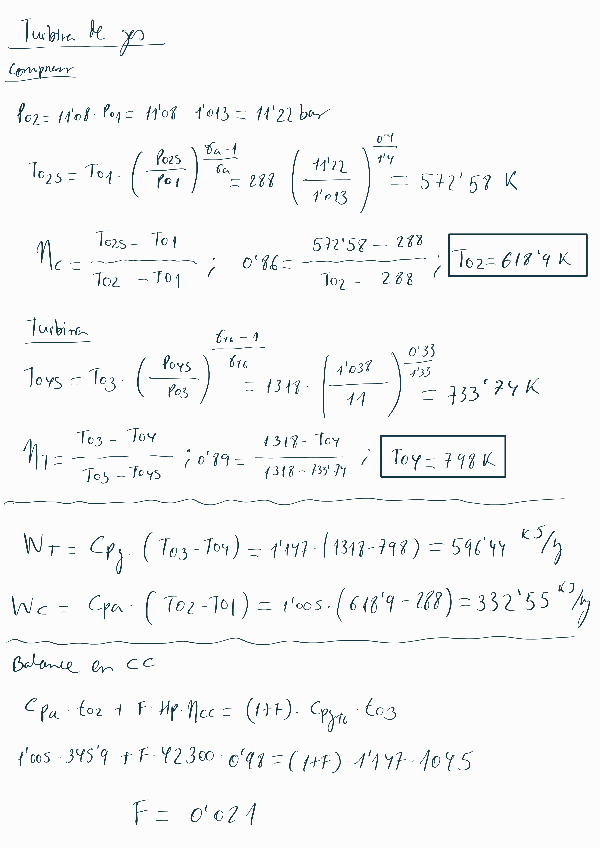 Turbina de gas
Compresor
P02 = 11'08 · P01 = 11'08 1'013 = 11'22 bar
T02s = T01 · (P02s/P01)^(γa-1/γa) = 288 (11'22/1'013)^(0'4/1'4) = 572'58 K
ηc = T02s - T01 / T02 - T01 ; 0'86 = 572'58 - 288 / T02 - 288 ; T02 = 618'9 K
Turbina
T04s = T03 · (P04s/P03)^(γg-1/γg) = 1318 · (1'038/11)^(0'33/1'33) = 733'74 K
ηT = T03 - T04 / T03 - T04s ; 0'89 = 1318 - T04 / 1318 - 733'74 ; T04 = 798 K
WT = Cpg · (T03 - T04) = 1'147 · (1318 - 798) = 596'44 KJ/kg
Wc = Cpa · (T02 - T01) = 1'005 · (618'9 - 288) = 332'55 KJ/kg
Balance en CC
Cpa · t02 + F · Hp · ηcc = (1+F) · Cpg · t03
1'005 · 345'9 + F · 42300 · 0'98 = (1+F) 1'147 · 1045
F = 0'021